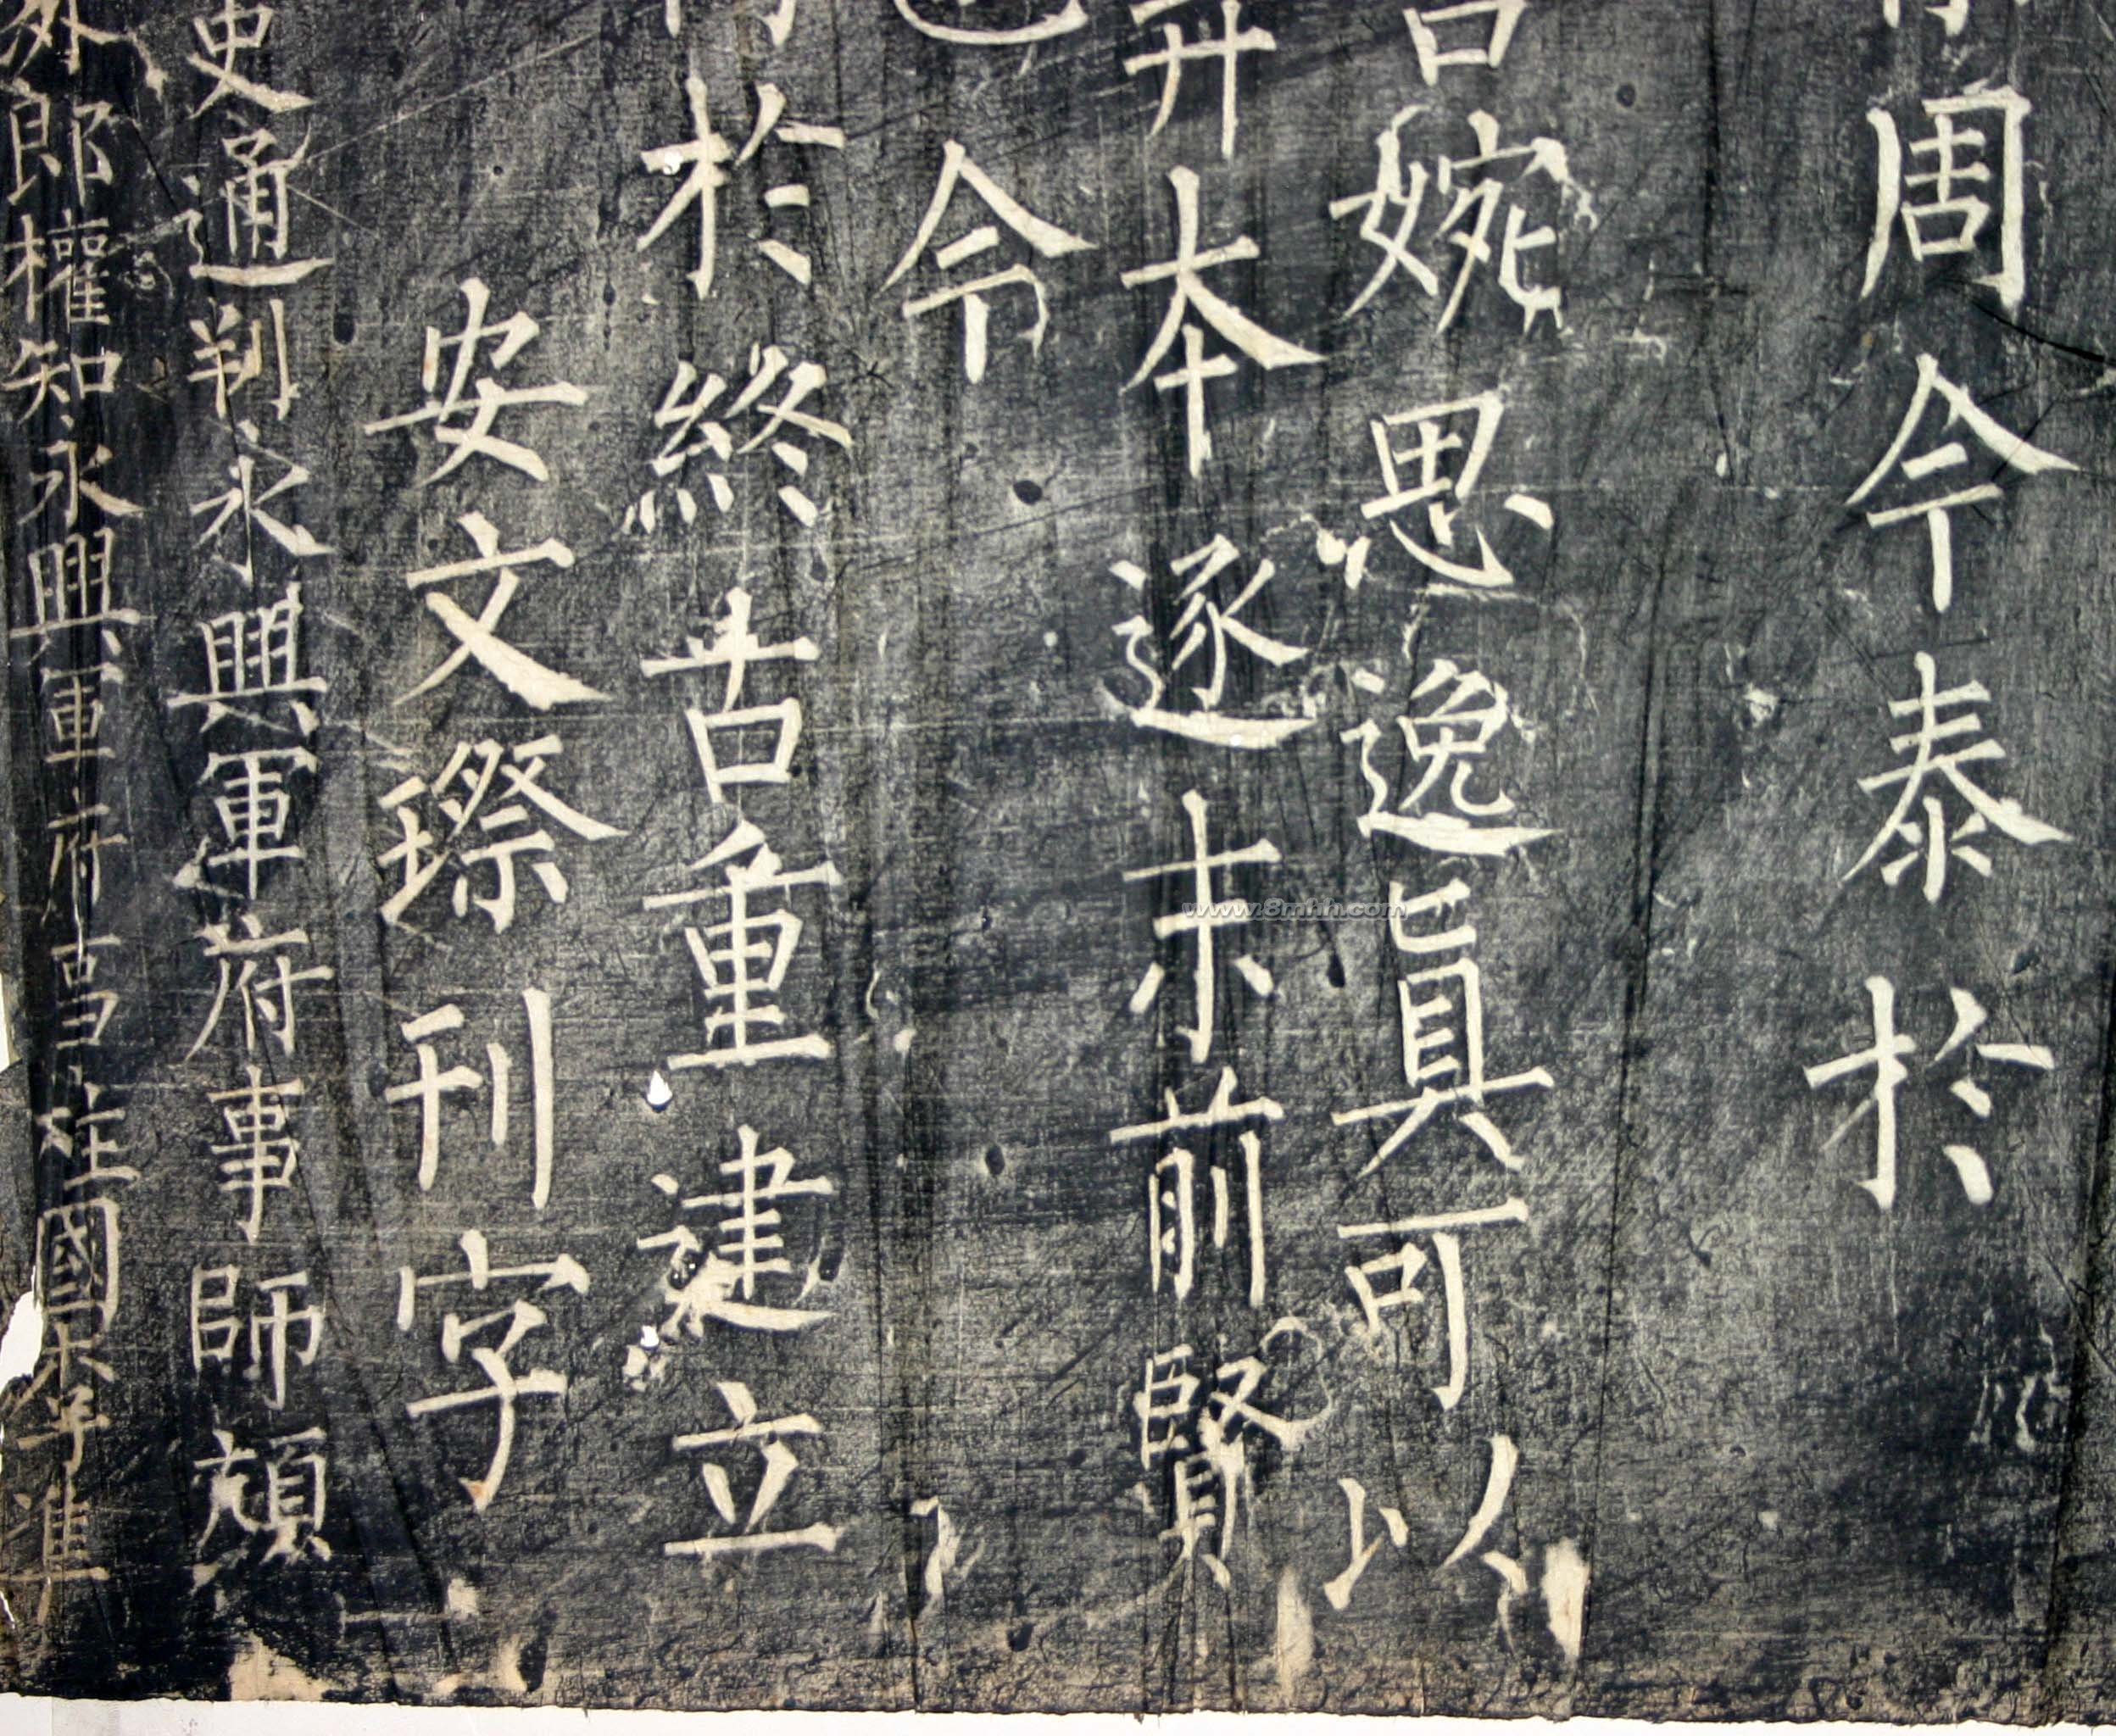 周今泰於
婉思逸眞可以
升本逐未前賢
令
於終古重建立
安文璨刊字
史通判永興軍府事師頏
外郎權知永興軍府
國
準
www.8mhh.com